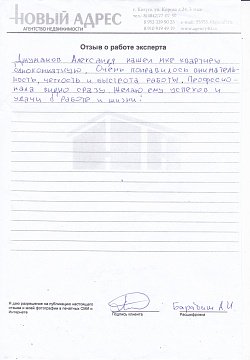 НОВЫЙ АДРЕС
АГЕНТСТВО НЕДВИЖИМОСТИ
Отзыв о работе эксперта
Александр нашел мне квартиру
однокомнатную. Очень понравилось вниматель-
ность, чёткость и быстрота работы. Професcио-
нала видно сразу. Желаю ему успехов и
удачи в работе и жизни!
Я даю разрешение на публикацию настоящего
отзыва и моей фотографии в печатных СМИ и
Интернете
Подпись клиента
Расшифровка